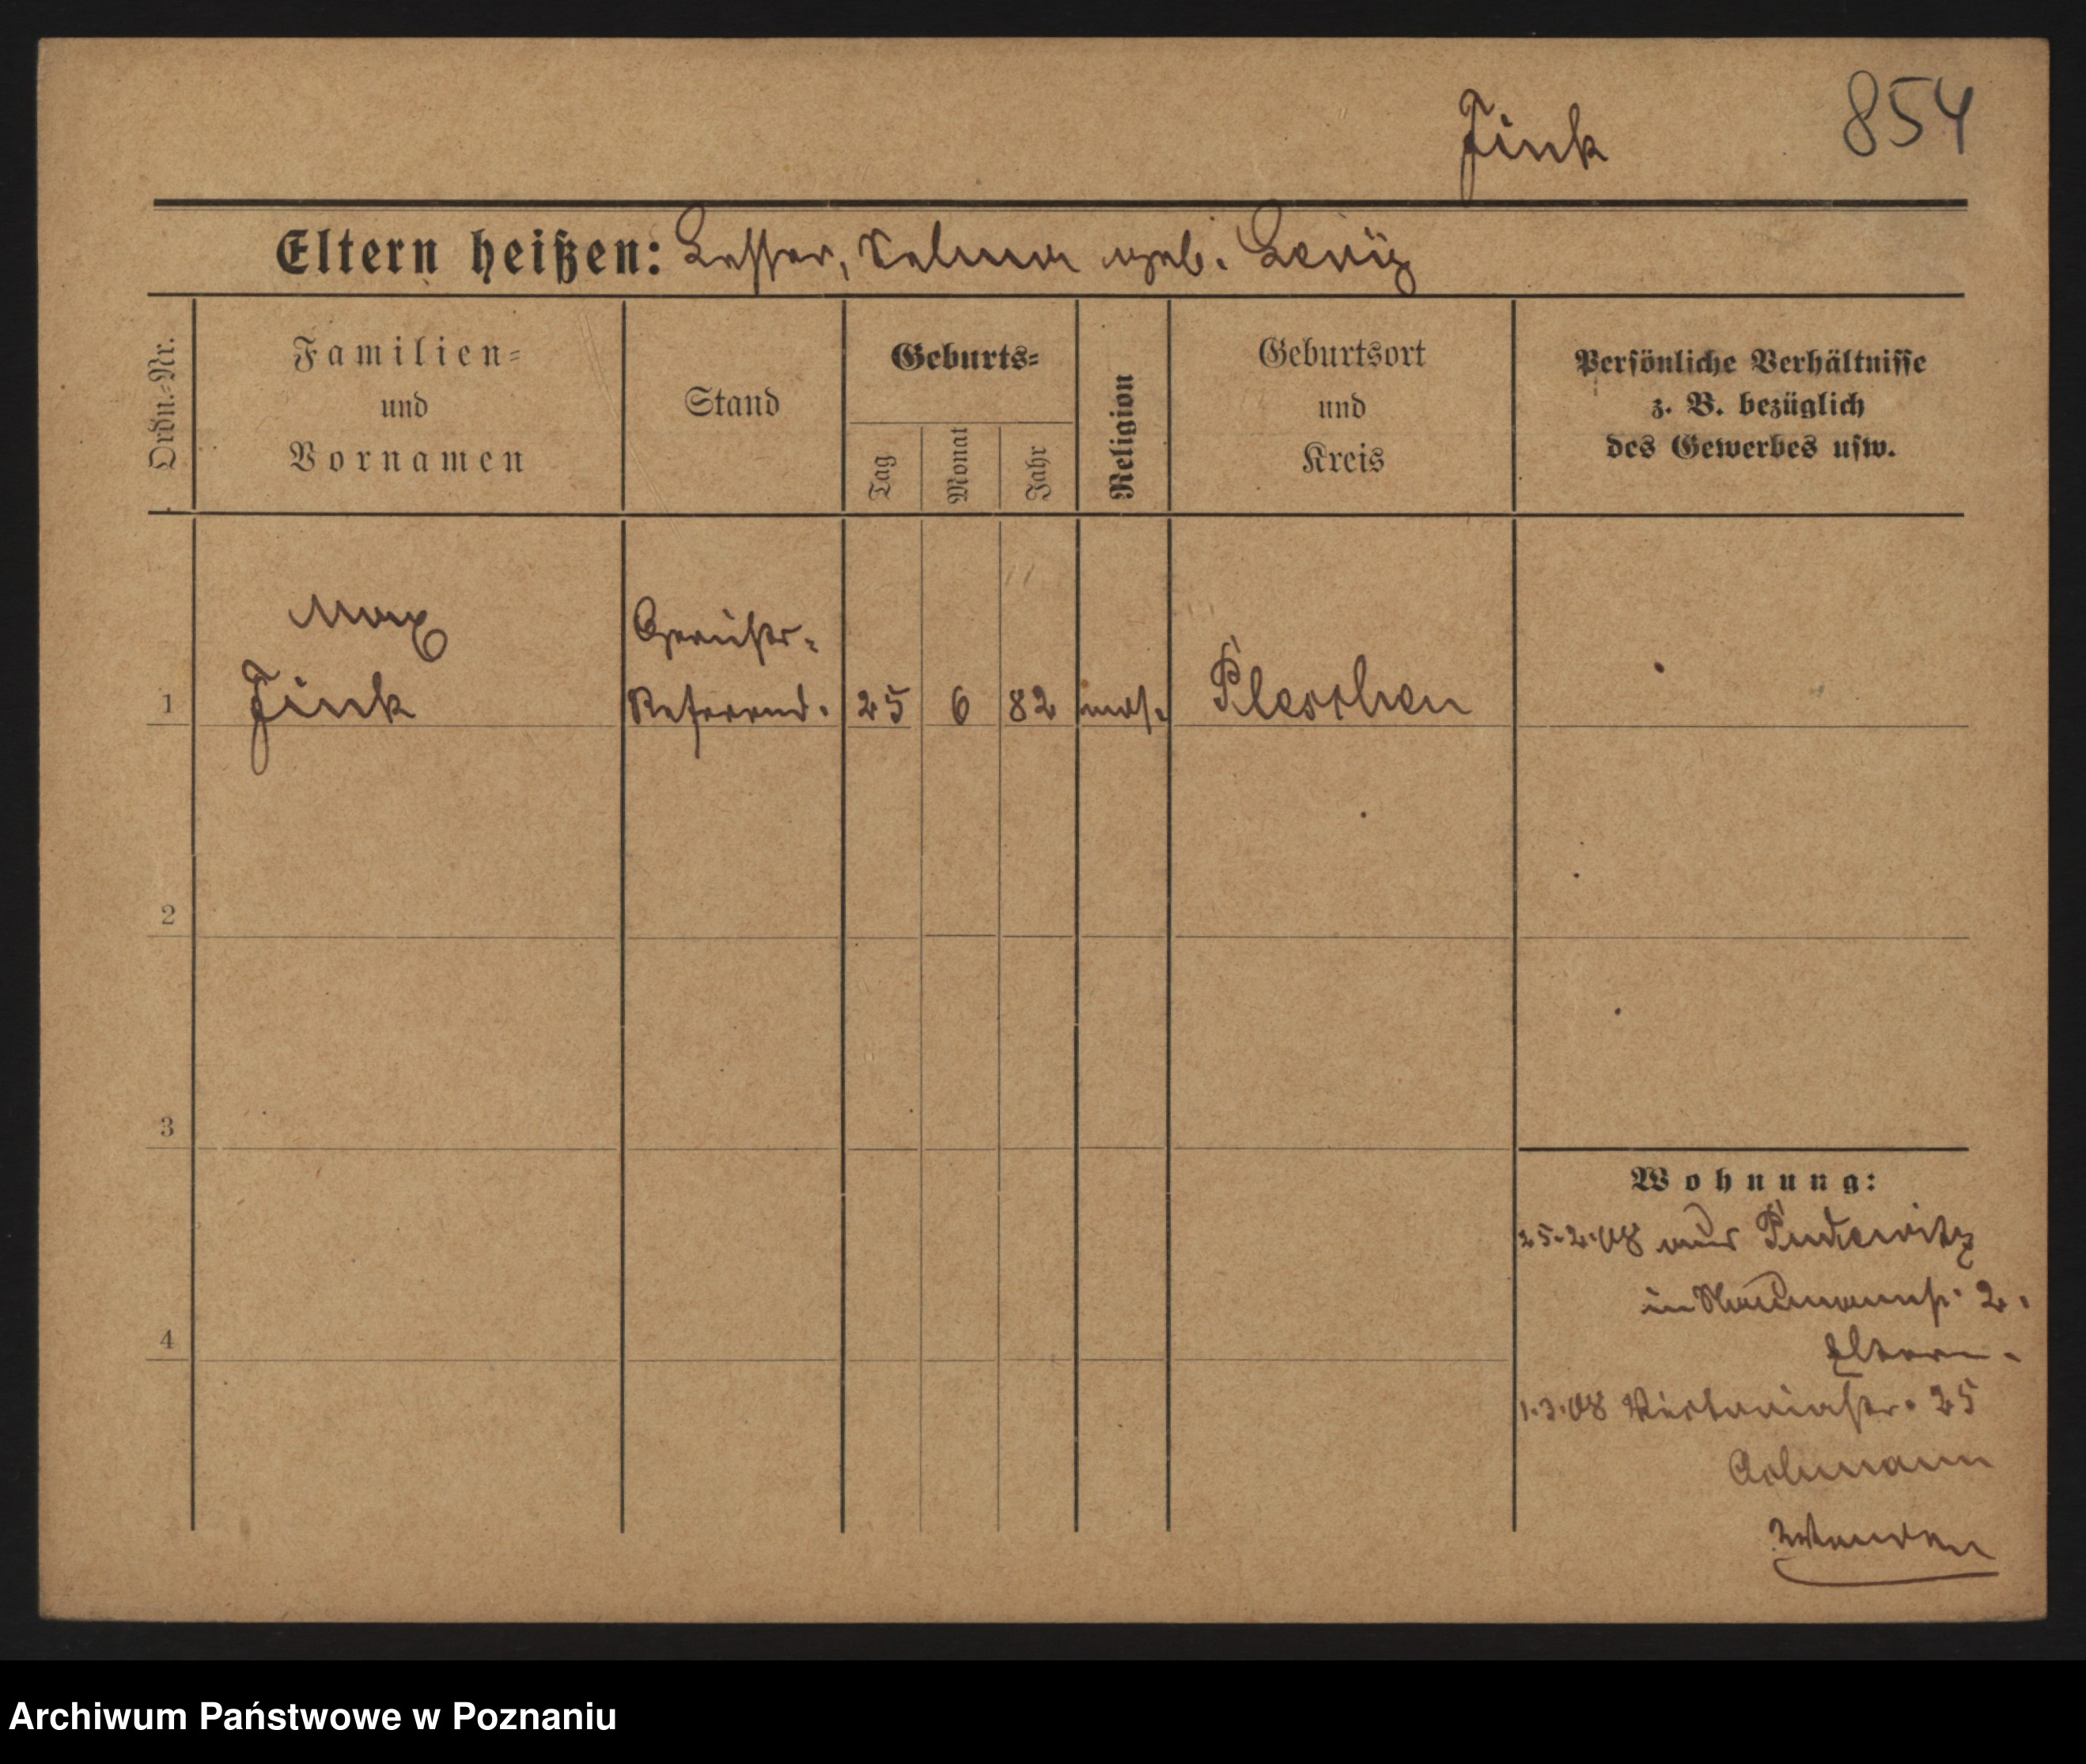 Fink 854
Eltern heißen: Lesser, Salma geb. Leviz
Ordn.-Nr.
Familien-
und
Vornamen
Stand
Geburts-
Tag
Monat
Jahr
Religion
Geburtsort
und
Kreis
Persönliche Verhältnisse
z. B. bezüglich
des Gewerbes usw.
Max Gerichts-
1 Fink Referend. 25 6 82 mos. Pleschen
2
3
4
Wohnung:
25.2.08 aus Pudewitz
in Naumannstr. 2.
Eltern.
1.3.08 Victoriastr. 25
Archiwum Państwowe w Poznaniu